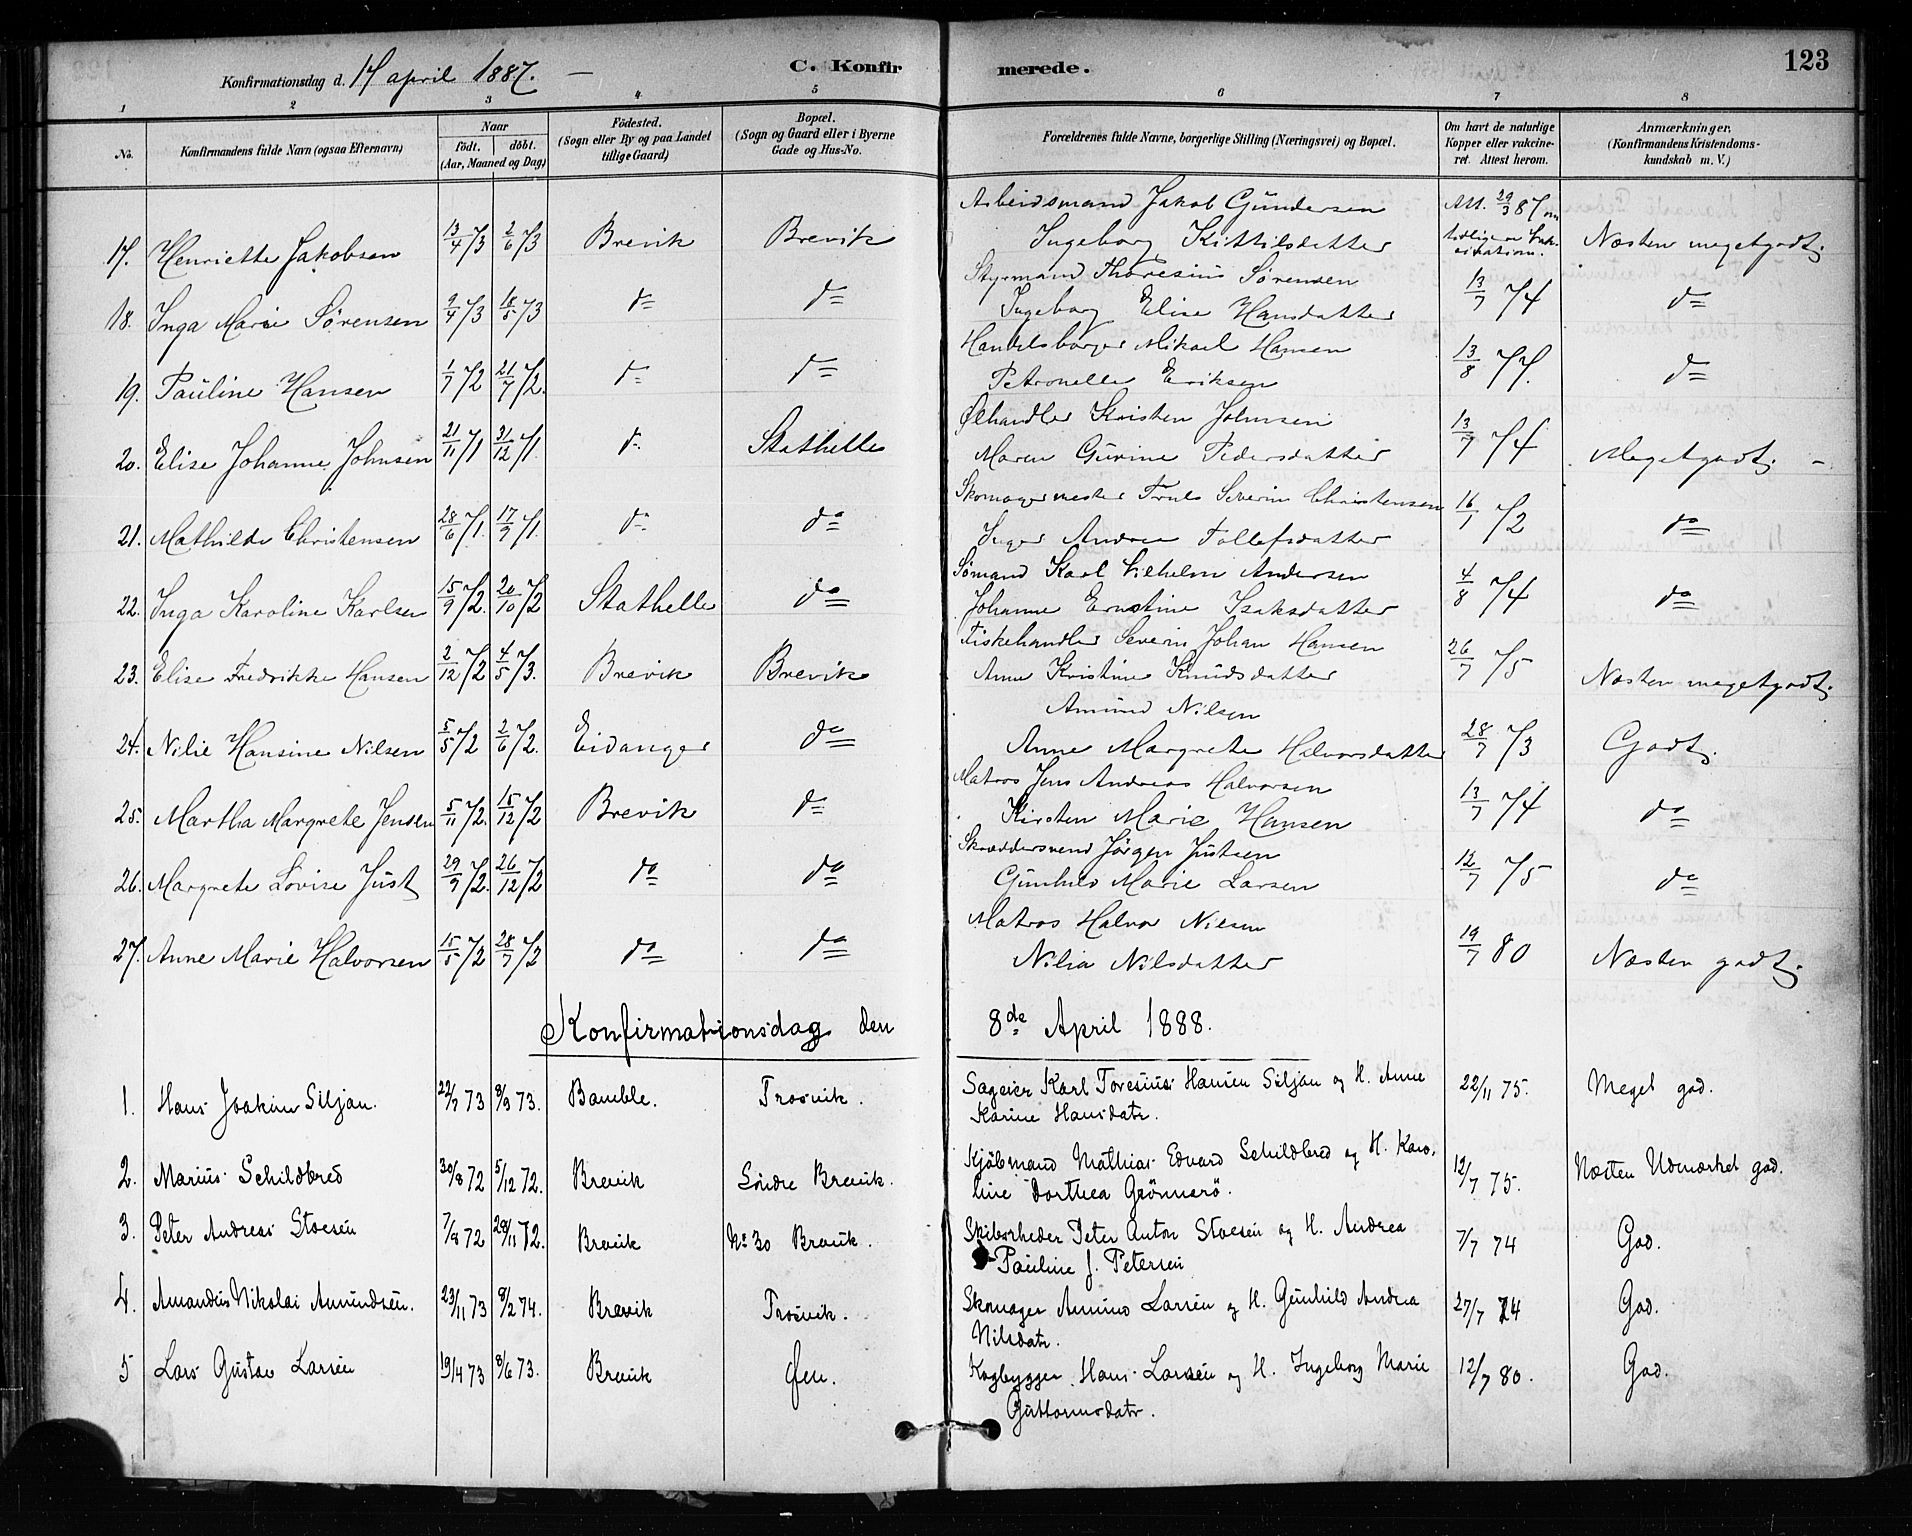 Konfirmationsdag d. 17 april 1887. — C. Konfir merede. 123
1 2 3 4 5 6 7 8
No. Konfirmandens fulde Navn (ogsaa Efternavn) Naar födt. döbt. (Aar, Maaned og Dag) Födested. (Sogn eller By og paa Landet tillige Gaard) Bopæl. (Sogn og Gaard eller i Byerne Gade og Hus-No. Forældrenes fulde Navne, borgerlige Stilling (Næringsvei) og Bopæl. Om havt de naturlige Kopper eller vakcineret. Attest herom. Anmærkninger. (Konfirmandens Kristendomskundskab m. V.)
Arbeidsmand Jakob Gundersen Att. 29/3 87 om
17. Henriette Jakobsen 13/4 73 2/6 73 Brevik Brevik Ingeborg Kittilsdatter tidligere Næsten megetgodt.
Styrmand Thoresius Sørensen
18. Inga Marie Sørensen 9/4 73 18/5 73 do do Ingeborg Elise Hansdatter 13/7 74 do
Handelsborger Mikael Hansen
19. Pauline Hansen 1/7 72 21/7 72. do do Petronelle Eriksen 13/8 77. do
Ølhandler Kristen Johnsen
20. Elise Johanne Johnsen 21/11 71 31/12 71. do Stathelle Maren Gurine Pedersdatter 13/7 74 Megetgodt. –
Skomagermester Truls Severin Christensen
21. Mathilde Christensen 28/6 71. 17/9 71. do do Inger Andrea Tollefsdatter 16/1 72 do
Sømand Karl Vilhelm Andersen
22. Inga Karoline Karlsen 15/9 72. 20/10 72 Stathelle do Johanne Ernstine Isaksdatter 4/8 74 do
Fiskehandler Severin Johan Hansen
23. Elise Fredrikke Hansen 2/12 72 4/5 73. Brevik Brevik Anne Kristine Knudsdatter 26/7 75 Næsten megetgodt.
Amund Nilsen
24. Nilie Hansine Nilsen 5/5 72 2/6 72. Eidanger do Anne Margrete Halvorsdatter 28/7 73 Godt.
Matros Jens Andreas Halvorsen
25. Martha Margrete Jensen 5/11 72. 15/12 72 Brevik do Kirsten Marie Hansen 13/7 74 do
Skræddersvend Jørgen Justsen
26. Margrete Lovise Just 29/9 72. 26/12 72 do do Gunhild Marie Larsen 12/7 75 do
Matros Halvor Nilsen
27. Anne Marie Halvorsen 15/5 72 28/7 72 do do Nilia Nilsdatter 19/7 80 Næsten godt.
Konfirmationsdag den 8de April 1888.
1. Hans Joakim Siljan. 22/7 73 8/9 73. Bamble. Trosvik. Sageier Karl Toresius Hansen Siljan og H. Anne 22/11 75. Meget god.
Karine Hansdatr.
2. Marius Schildbred 30/8 72 5/12 72. Brevik Søndre Brevik. Kjøbmand Mathias Edvard Schildbred og H. Karo- 12/7 75. Næsten Udmærket god.
line Dorthea Grønnerø.
3. Peter Andreas Stoesen 7/8 72 28/11 72. Brevik No 30 Brevik. Skibsrheder Peter Anton Stoesen og H. Andrea 7/7 74 God.
Pauline J. Petersen
4. Amandus Nikolai Amundsen. 23/11 73 8/2 74. Brevik Trosvik. Skomager Amund Larsen og H. Gunhild Andrea 27/7 74 God.
Nilsdatr.
5 Lars Gustav Larsen 19/4 73 8/6 73. Brevik Øen. Kagbygger Hans Larsen og H. Ingeborg Marie 12/7 80. God.
Guttormsdatr.